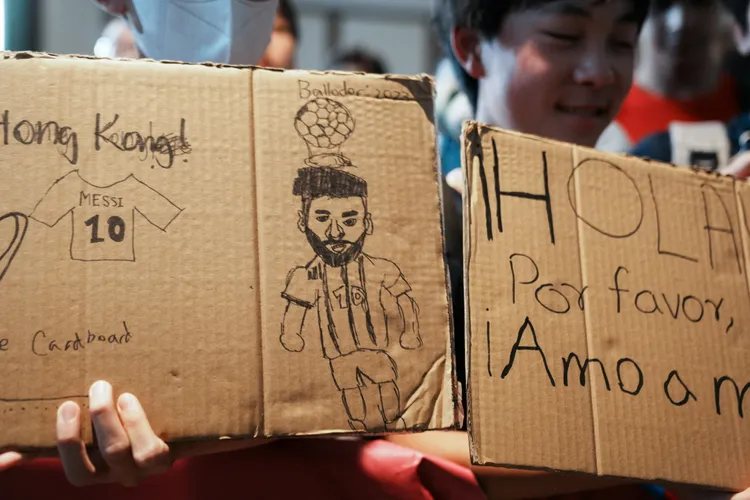 Hong Kong!
MESSI
10
e Cardboard
Ballodor 2023
10
¡HOLA
Por favor,
¡Amo a m